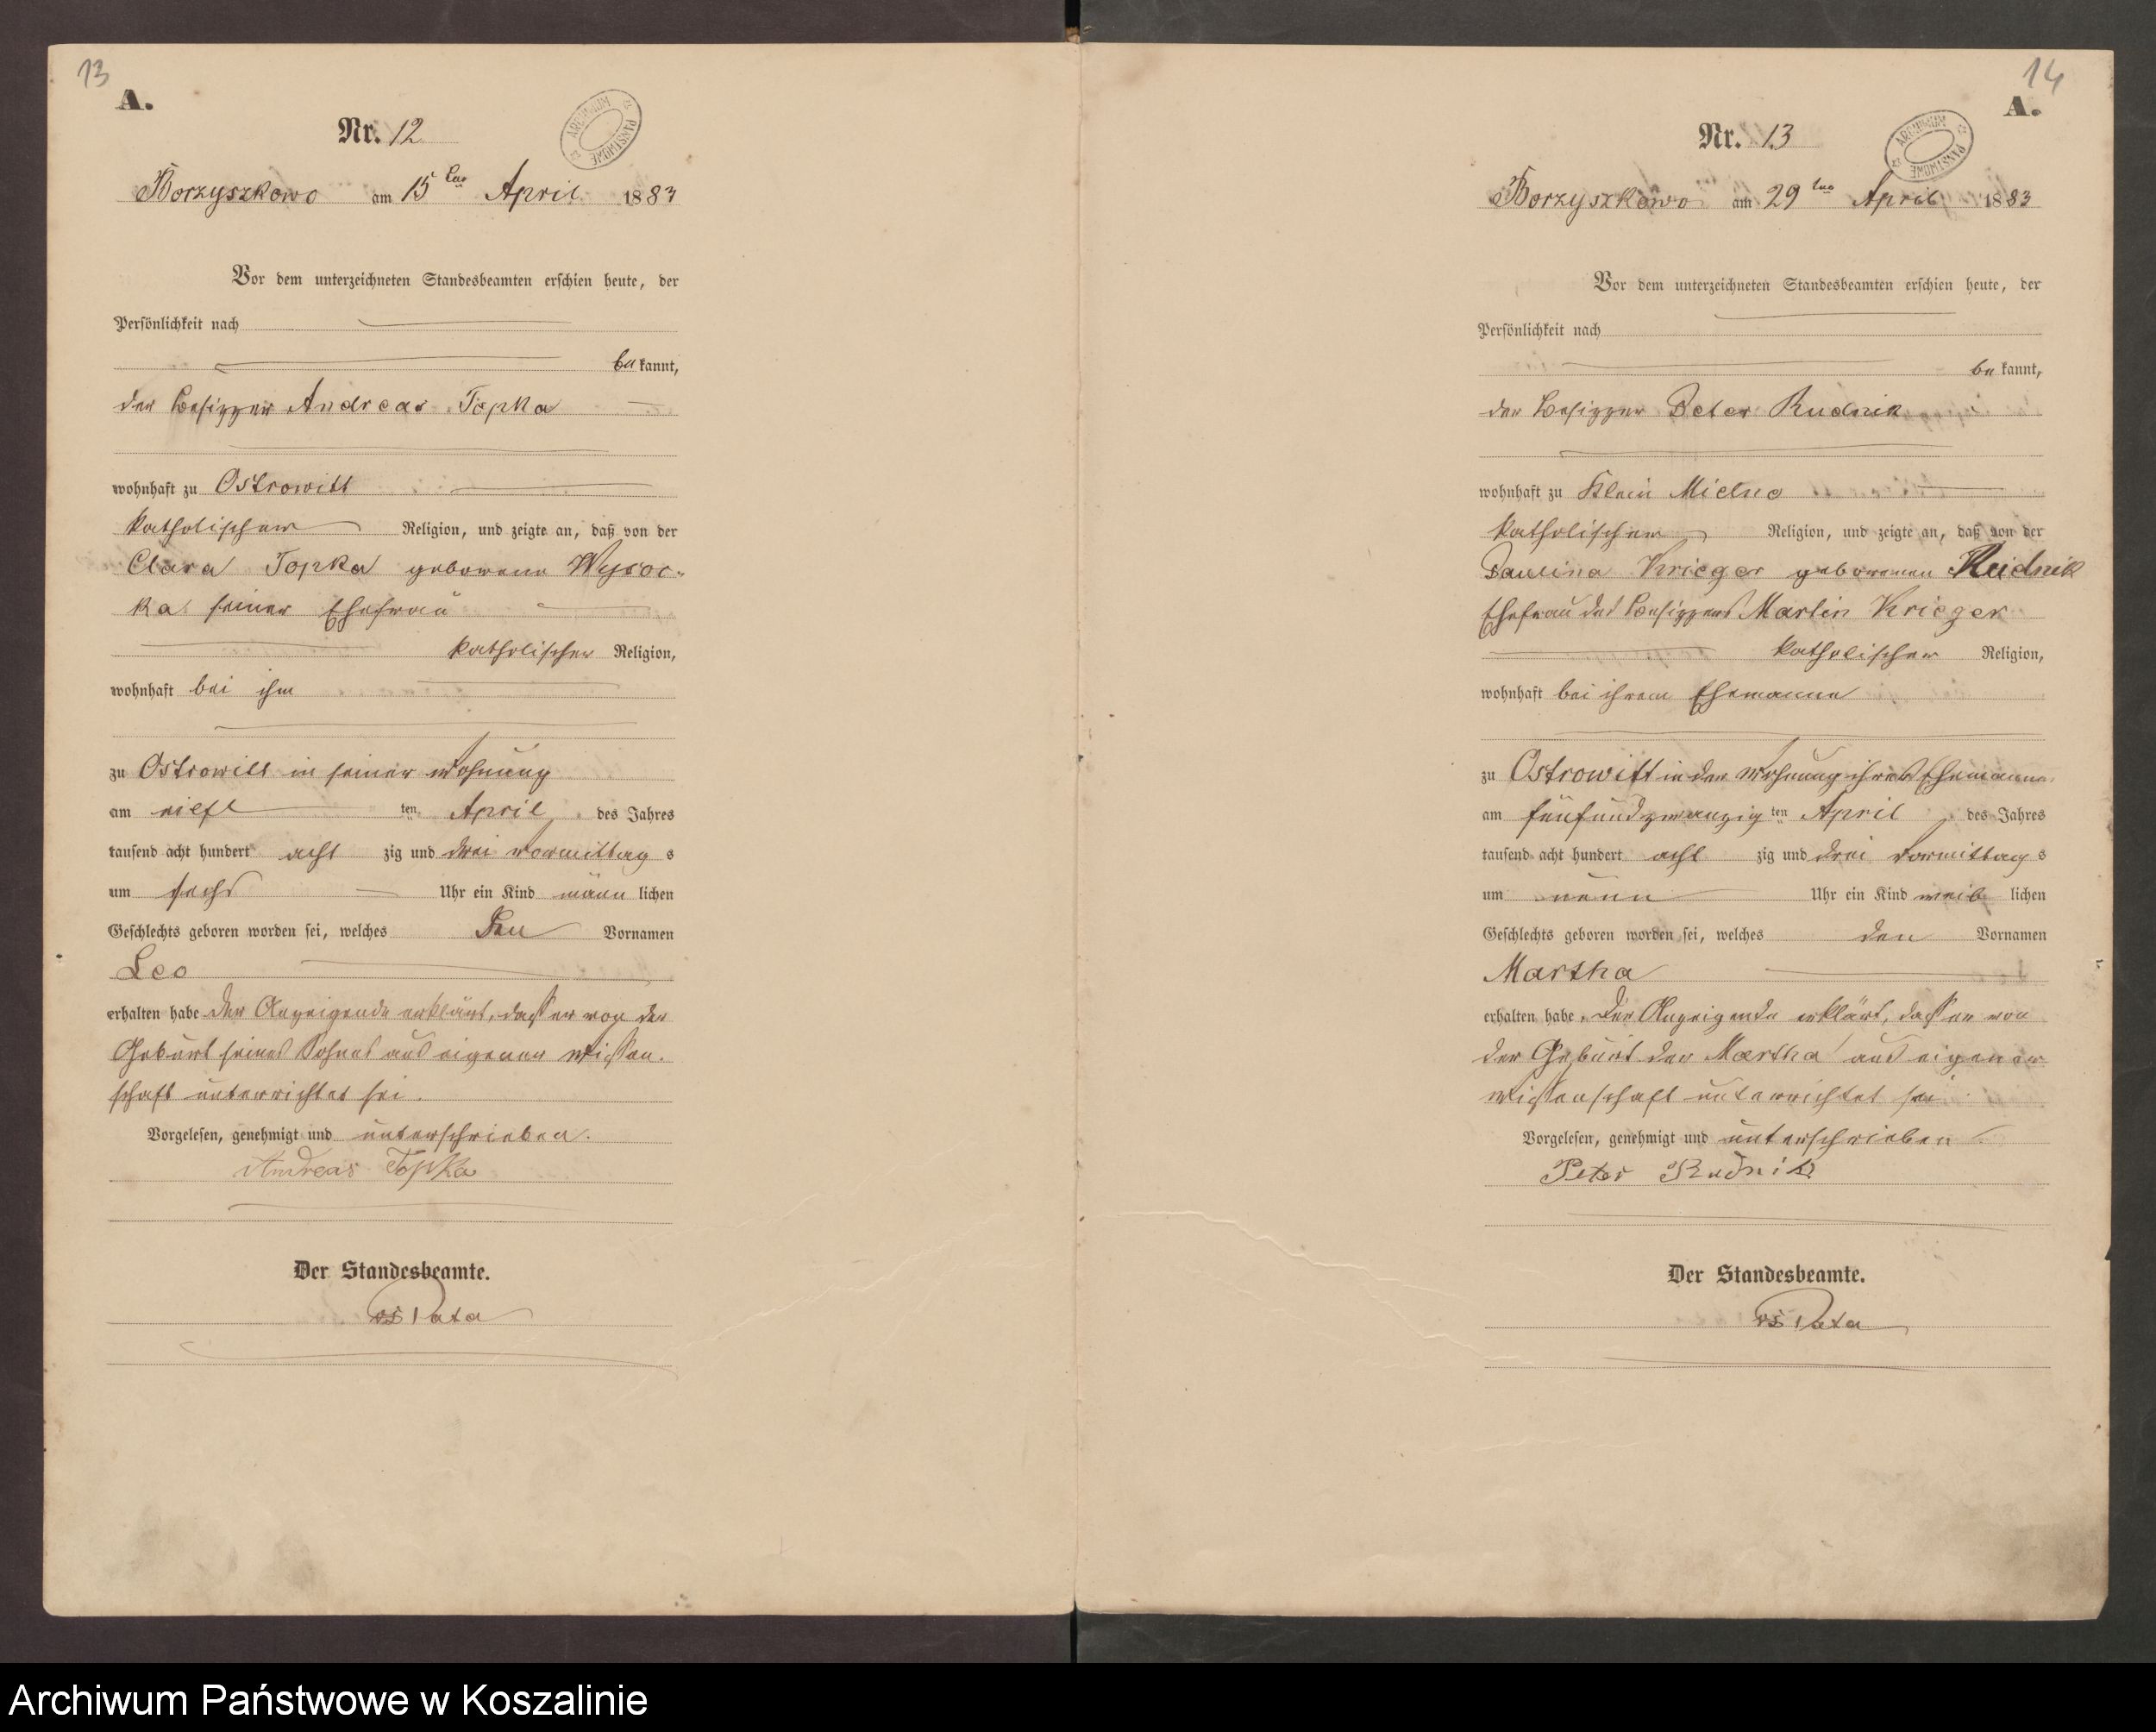 13
A.
Nr. 12
ARCHIWUM PAŃSTWOWE
Borzyszkowo am 15 ten April 1883
Vor dem unterzeichneten Standesbeamten erschien heute, der
Persönlichkeit nach
be kannt,
der Besitzer Andreas Topka
wohnhaft zu Ostrowitt
katholischer Religion, und zeigte an, daß von der
Clara Topka geborene Wysoc-
ka seiner Ehefrau
katholischer Religion,
wohnhaft bei ihm
zu Ostrowitt in seiner Wohnung
am eilft ten April des Jahres
tausend acht hundert acht zig und drei Vormittag s
um sechs Uhr ein Kind männ lichen
Geschlechts geboren worden sei, welches den Vornamen
Leo
erhalten habe der Anzeigende erklärt, dass er von der
Geburt seines Sohnes aus eigener Wissen-
schaft unterrichtet sei.
Vorgelesen, genehmigt und unterschrieben.
Andreas Topka
Der Standesbeamte.
14
A.
Nr. 13
ARCHIWUM PAŃSTWOWE
Borzyszkowo am 29 ten April 1883
Vor dem unterzeichneten Standesbeamten erschien heute, der
Persönlichkeit nach
be kannt,
der Besitzer Peter Rudnik
wohnhaft zu Klein Mielno
katholischer Religion, und zeigte an, daß von der
Paulina Krieger geborenen Rudnik
Ehefrau des Besitzers Martin Krieger
katholischer Religion,
wohnhaft bei ihrem Ehemanne
zu Ostrowitt in der Wohnung ihres Ehemannes
am fünfundzwanzig ten April des Jahres
tausend acht hundert acht zig und drei Vormittag s
um neun Uhr ein Kind weib lichen
Geschlechts geboren worden sei, welches den Vornamen
Martha
erhalten habe. Der Anzeigende erklärt, dass er von
der Geburt der Martha aus eigener
Wissenschaft unterrichtet sei
Vorgelesen, genehmigt und unterschrieben
Peter Rudnik
Der Standesbeamte.
Archiwum Państwowe w Koszalinie